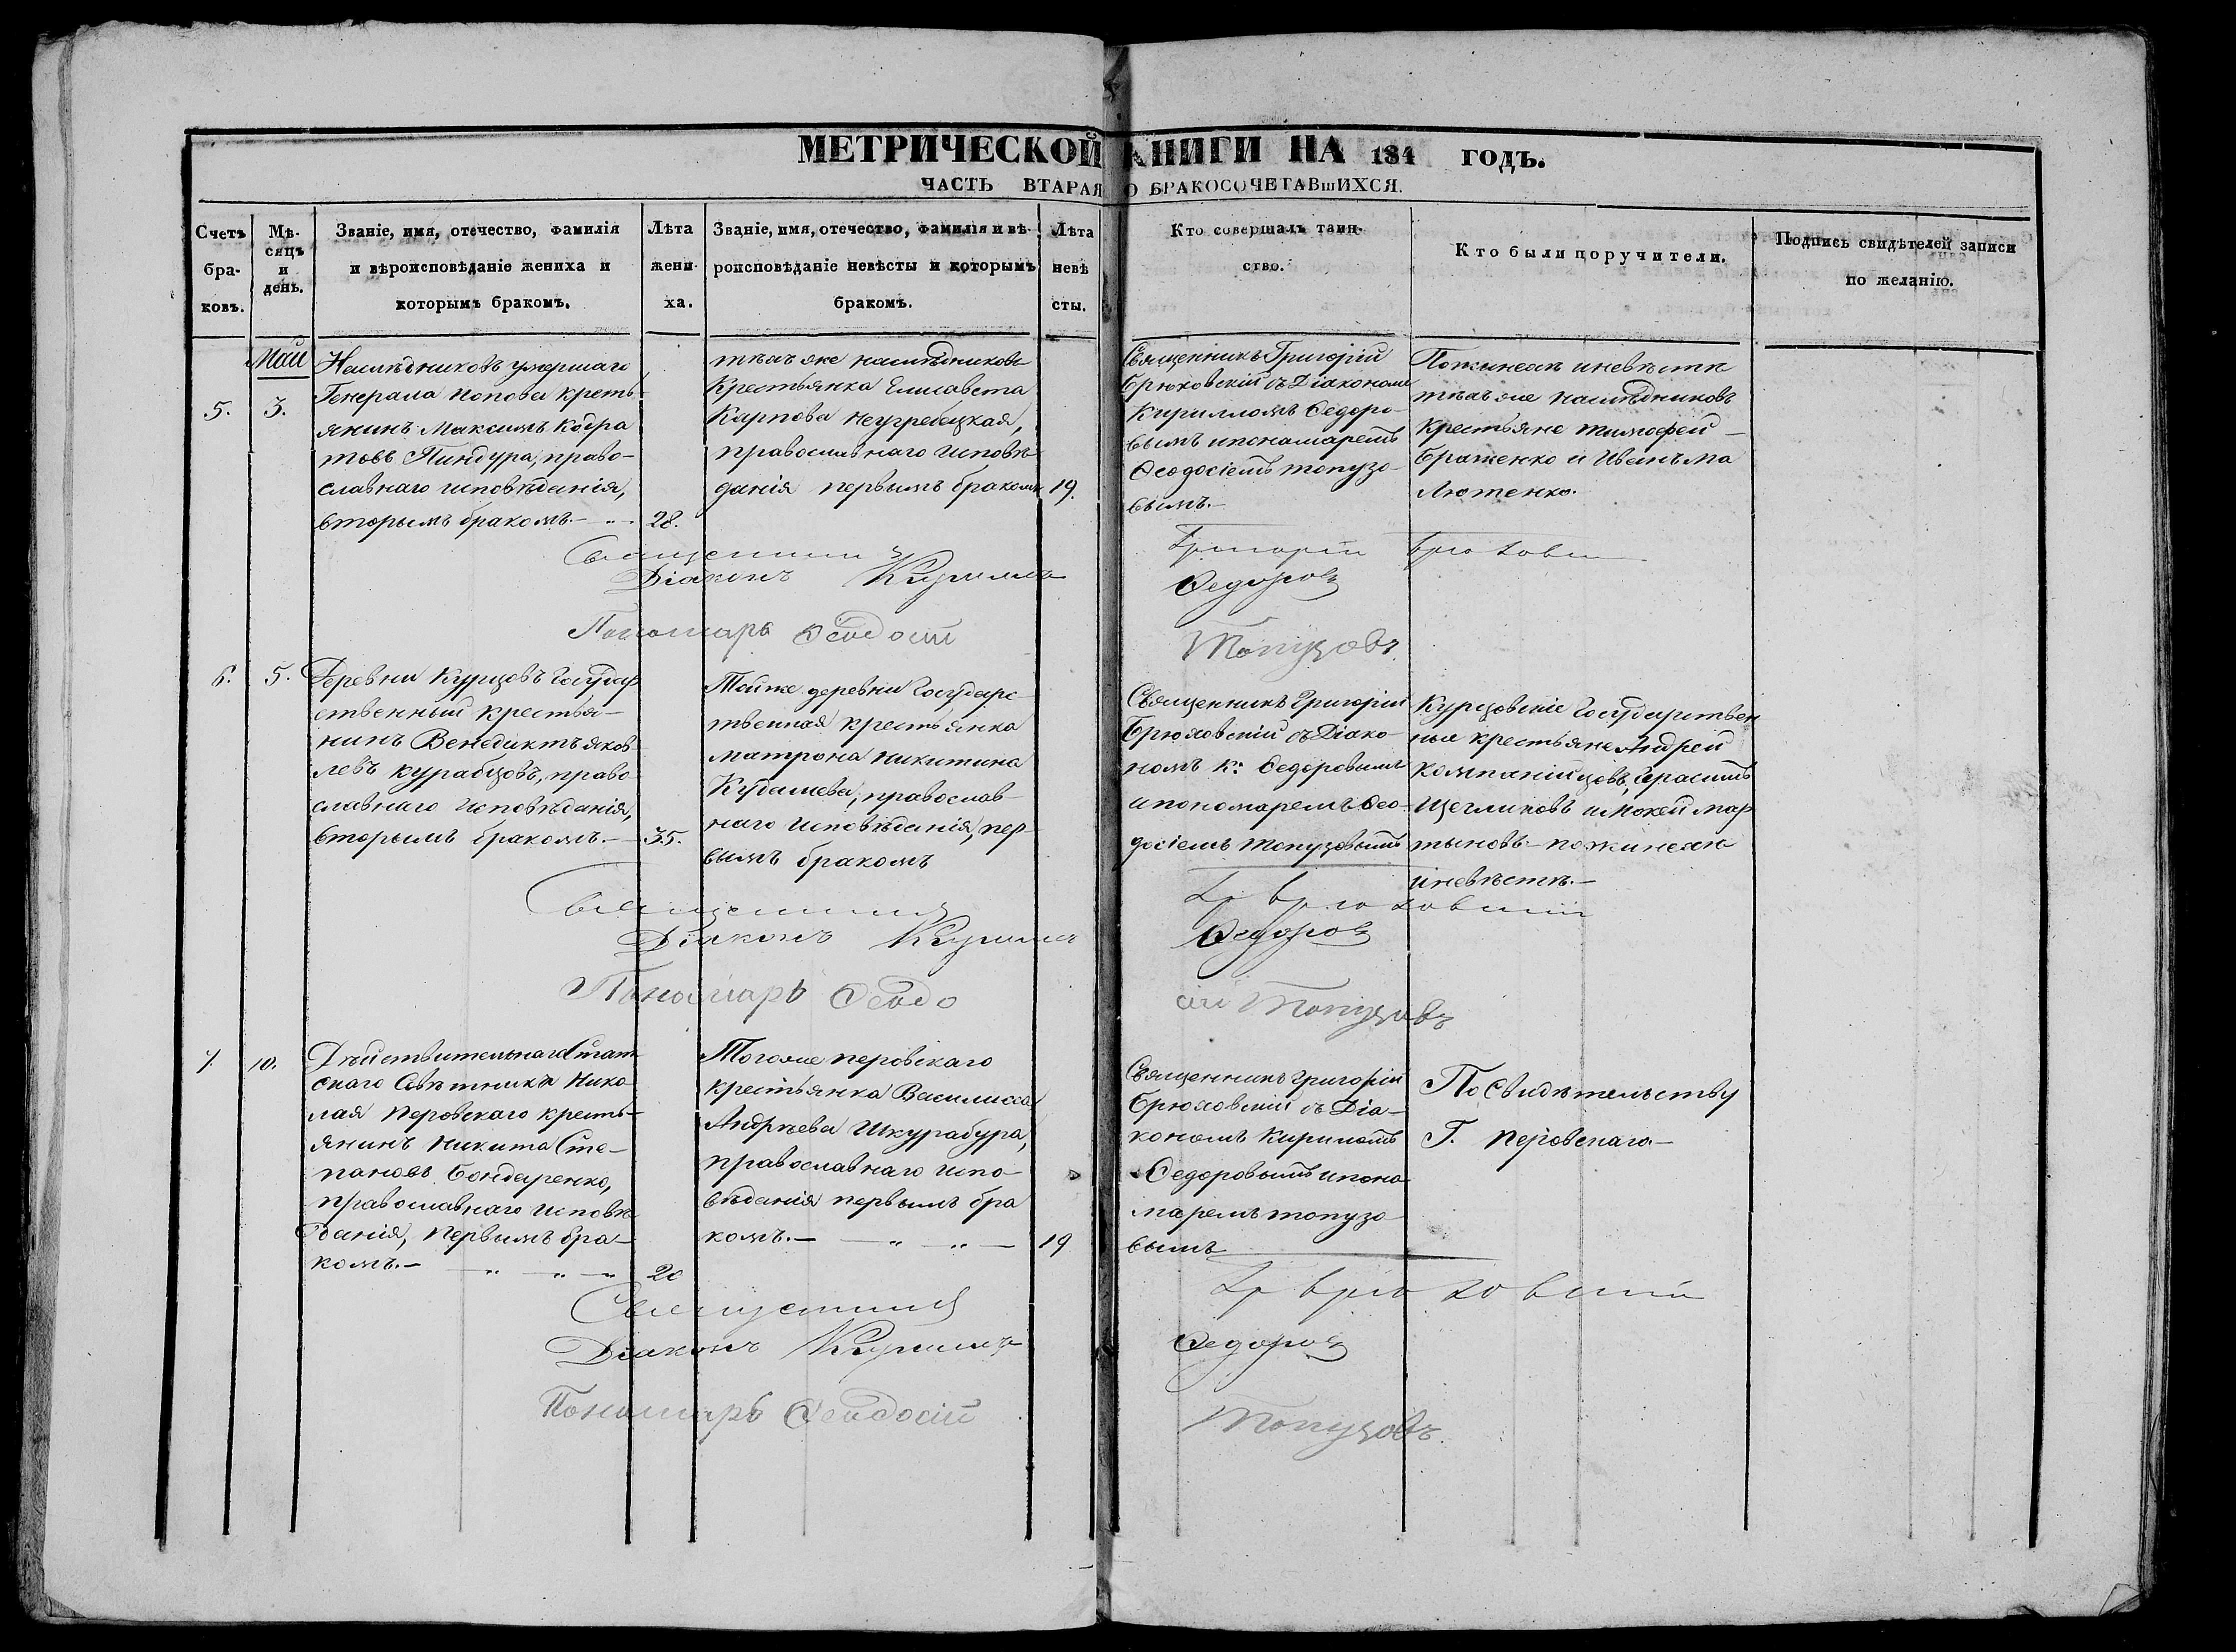 МЕТРИЧЕСКОЙ КНИГИ НА 184 ГОДЪ.
ЧАСТЬ ВТАРАЯ О БРАКОСОЧЕТАВшИХСЯ.
Счетъ бра- ковъ.
Мѣ- сяцъ и день.
Званіе, имя, отечество, фамилія и вѣроисповѣданіе жениха и которымъ бракомъ.
Лѣта жени- ха.
Званіе, имя, отечество, фамилія и вѣ- роисповѣданіе невѣсты и которымъ бракомъ.
Лѣта невѣ сты.
Кто совершалъ таин- ство.
Кто были поручители.
Подпись свидѣтелей записи по желанію.
Май
5.
3.
Наслѣдниковъ умершаго
Генерала Попова кресть-
янинъ Максимъ Кодра
товъ Пиндура, право-
славнаго исповѣданія,
вторымъ бракомъ.-
28.
тѣхъ же наслѣдниковъ
Крестьянка Елисавета
Карпова Неугребецкая,
православнаго исповѣ-
данія первымъ бракомъ
19.
Священникъ Григорій
Брюховскій съ Діакономъ
Кирилломъ Ѳедоро-
вымъ и понамаремъ
Ѳеодосіемъ Топузо-
вымъ.-
По женихѣ и невѣстѣ
тѣхъ же наслѣдниковъ
Крестьяне Тимофей
Браженко и Иванъ Ма
Лютенко.
Священникъ Григорій Брюховскій
Діаконъ Кириллъ Ѳедоровъ
Пономарь Ѳеодосій Топузовъ
6.
5.
Деревни Курцовъ Государ
ственный крестья-
нинъ Венедиктъ Яков-
левъ Курабцовъ, право
славнаго исповѣданія,
вторымъ бракомъ.-
35.
Тойже деревни Государс
твенная крестьянка
Матрона Никитина
Кубашева, православ-
наго исповѣданія, пер-
вымъ бракомъ
Священникъ Григорій
Брюховскій съ Діако-
номъ К: Ѳедоровымъ
и пономаремъ Ѳео-
досіемъ Топузовымъ
Курцовскіе Государствен
ные крестьяне Андрей
Компанійцовъ, Герасимъ
Щегликовъ и Мокей Мар
тыновъ - по женихѣ
и невѣстѣ.-
Священникъ Гр Брюховскій
Діаконъ Кириллъ Ѳедоровъ
Пономарь Ѳеодосій Топузовъ
7.
10.
Дѣйствительнаго Статс
скаго Совѣтника Нико-
лая Перовскаго кресть-
янинъ Никита Сте-
пановъ Бондаренко,
православнаго исповѣ
данія, первымъ бра-
комъ.-
20
Тогоже Перовскаго
крестьянка Василисса
Андрѣева Шкурабура,
православнаго испо-
вѣданія первымъ бра
комъ.-
19
Священникъ Григорій
Брюховскій съ Діа-
кономъ Кириломъ
Ѳедоровымъ и поно-
маремъ Топузо-
вымъ
По свидѣтельству
Г. Перовскаго-
Священникъ Гр Брюховскій
Діаконъ Кириллъ Ѳедоровъ
Пономарь Ѳеодосій Топузовъ.